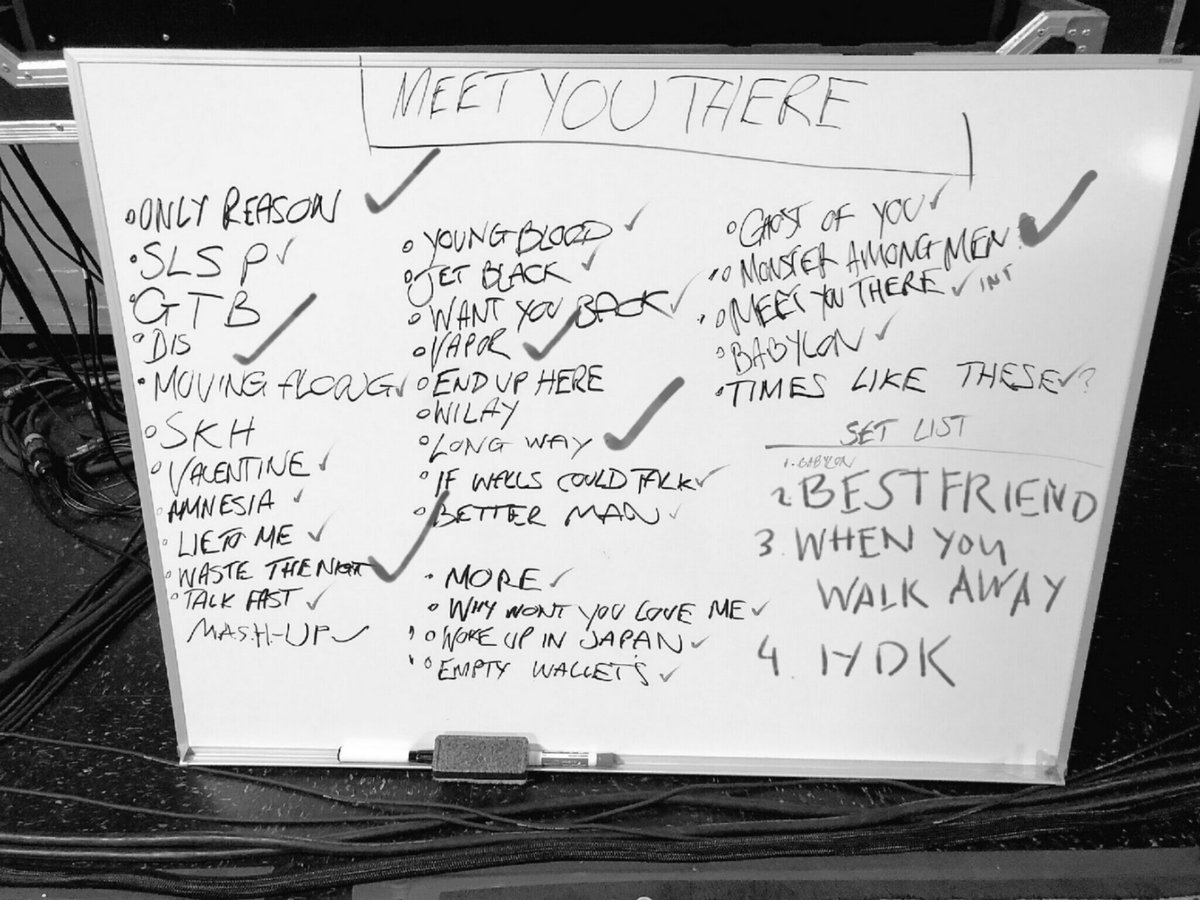 MEET YOU THERE
ONLY REASON ✓
SLSP ✓
GTB
DIS ✓
MOVING ALONG ✓
SKH
VALENTINE ✓
AMNESIA ✓
LIE TO ME ✓
WASTE THE NIGHT ✓
TALK FAST ✓
MASH-UP ✓
YOUNGBLOOD ✓
JET BLACK ✓
WANT YOU BACK ✓
VAPOR ✓
END UP HERE
WILAY
LONG WAY ✓
IF WALLS COULD TALK ✓
BETTER MAN ✓
MORE ✓
WHY WONT YOU LOVE ME ✓
WOKE UP IN JAPAN ✓
EMPTY WALLETS ✓
GHOST OF YOU ✓
MONSTER AMONG MEN ✓
MEET YOU THERE ✓ INT
BABYLON ✓
TIMES LIKE THESE ✓?
SET LIST
1. BABYLON
2 BEST FRIEND
3. WHEN YOU
WALK AWAY
4. IYDK